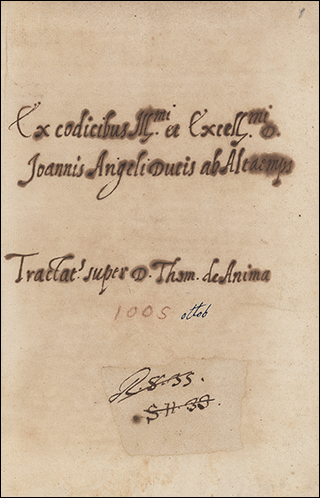 1
Ex codicibus Illmi et Excellmi D.
Joannis Angeli Ducis ab Altaemps
Tractats super D. Thom. de Anima
1005 ottob
R.8.35.
S.11.39.